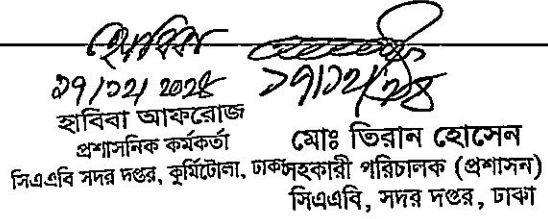 হাবিবা আফরোজ
প্রশাসনিক কর্মকর্তা
সিএএবি সদর দপ্তর, কুর্মিটোলা, ঢাকা
মোঃ তিরান হোসেন
সহকারী পরিচালক (প্রশাসন)
সিএএবি, সদর দপ্তর, ঢাকা